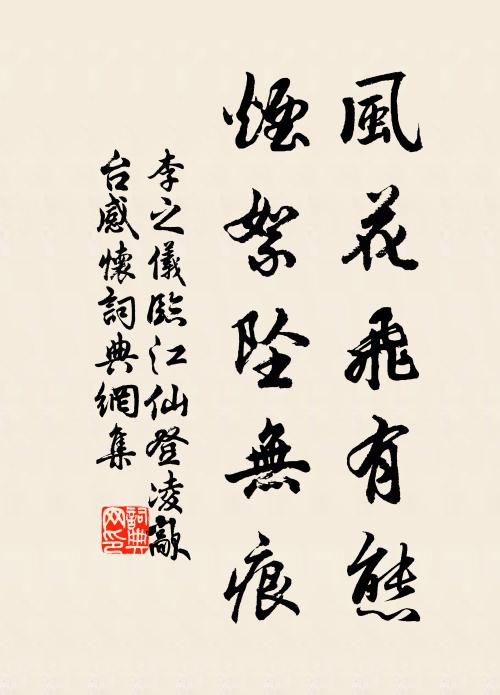 風花飛有態
煙絮墜無痕
李之儀臨江仙登凌歊
台感懷詞典網集
詞典
网印